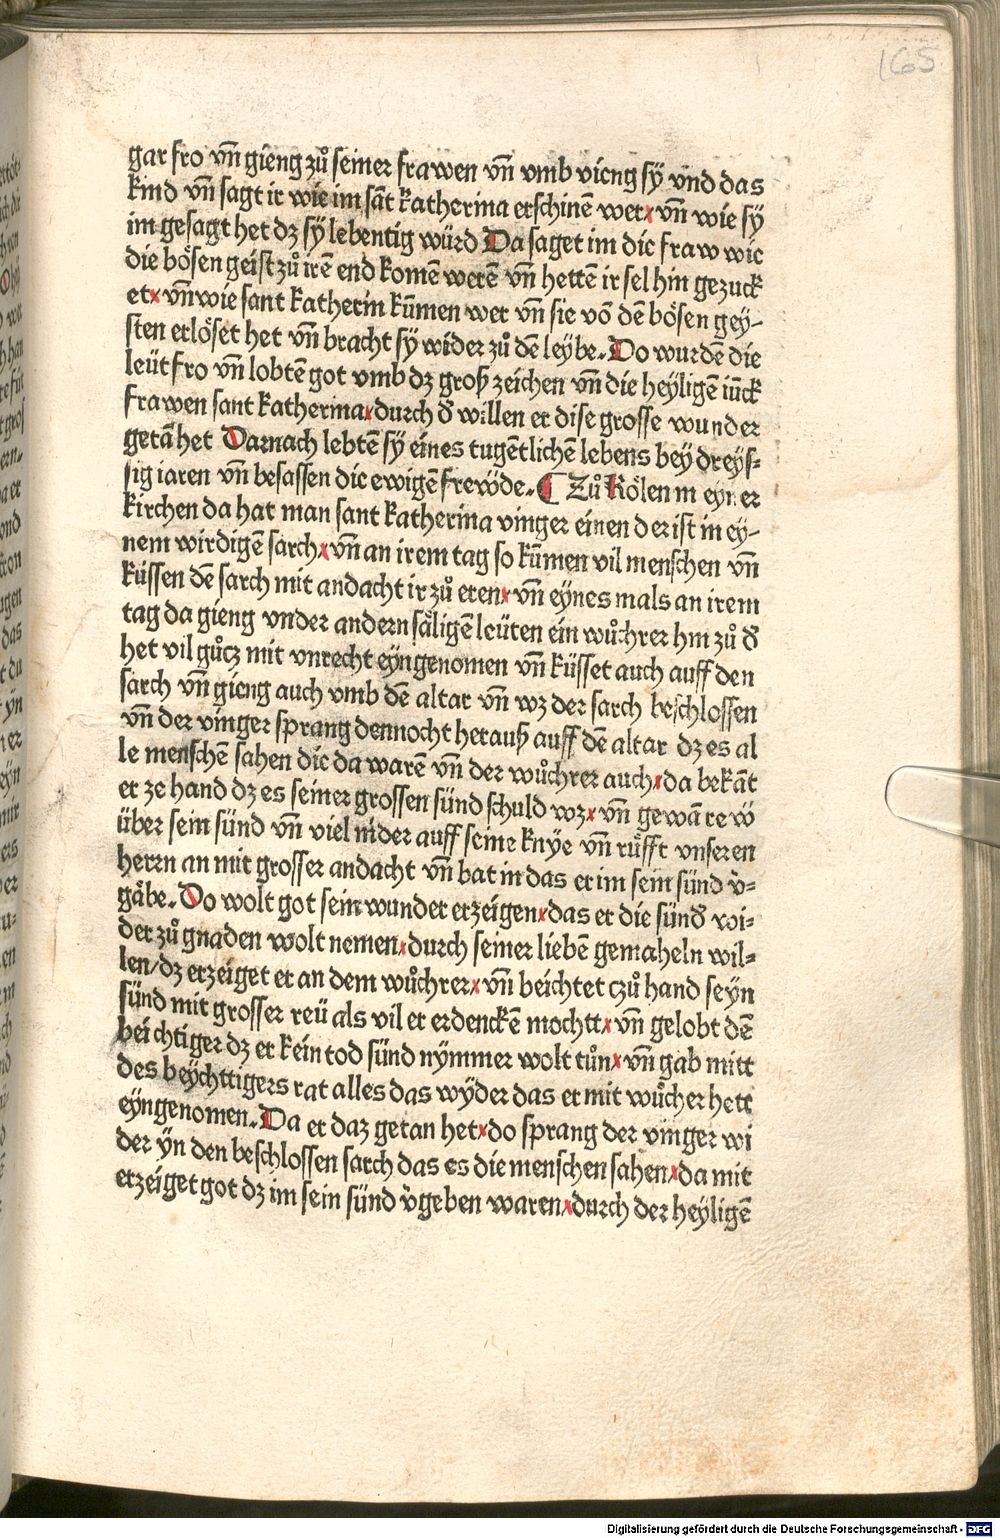 165
gar fro vñ gieng zů seiner frawen vñ vmb vieng sÿ vnd das
kind vñ sagt ir wie im sāt katherina erschinē wer vñ wie sÿ
im gesagt het dz sÿ lebentig würd Da saget im die fraw wie
die bösen geist zů irē end komē werē vñ hettē ir sel hin gezuck
et vñ wie sant katherin kūmen wer vñ sie vō dē bösen geÿ-
sten erlöset het vñ bracht sÿ wider zů dē leÿbe. Do wurdē die
leüt fro vñ lobtē got vmb dz groß zeichen vñ die heÿligē iūck
frawen sant katherina durch ð willen er dise grosse wunder
getā het Darnach lebtē sÿ eines tugētlichē lebens beÿ dreÿs-
sig iaren vñ besassen die ewigē frewde. ¶ Zů Kölen in eyner
kirchen da hat man sant katherina vinger einen der ist in eÿ-
nem wirdigē sarch vñ an irem tag so kūmen vil menschen vñ
küssen dē sarch mit andacht ir zů eren vñ eÿnes mals an irem
tag da gieng vnder andern säligē leüten ein wůchrer hin zů ð
het vil gůcz mit vnrecht eÿngenomen vñ küsset auch auff den
sarch vñ gieng auch vmb dē altar vñ wz der sarch beschlossen
vñ der vinger sprang dennocht herauß auff dē altar dz es al
le menschē sahen die da warē vñ der wůchrer auch da bekāt
er ze hand dz es seiner grossen sünd schuld wz vñ gewā rew
über sein sünd vñ viel nider auff seine knÿe vñ rüfft vnseren
herrn an mit grosser andacht vñ bat in das er im sein sünd v̄-
gäbe. Do wolt got sein wunder erzeigen das er die sünð wi-
der zů gnaden wolt nemen durch seiner liebē gemaheln wil-
len/dz erzeiget er an dem wůchrer vñ beichtet czů hand seÿn
sünd mit grosser reü als vil er erdenckē mochtt vñ gelobt dē
beichtiger dz er kein tod sünd nÿmmer wolt tůn vñ gab mitt
des beÿchttigers rat alles das wÿder das er mit wůcher hett
eÿngenomen. Da er daz getan het do sprang der vinger wi
der ÿn den beschlossen sarch das es die menschen sahen da mit
erzeiget got dz im sein sünd v̄geben waren durch der heÿligē
Digitalisierung gefördert durch die Deutsche Forschungsgemeinschaft - DFG